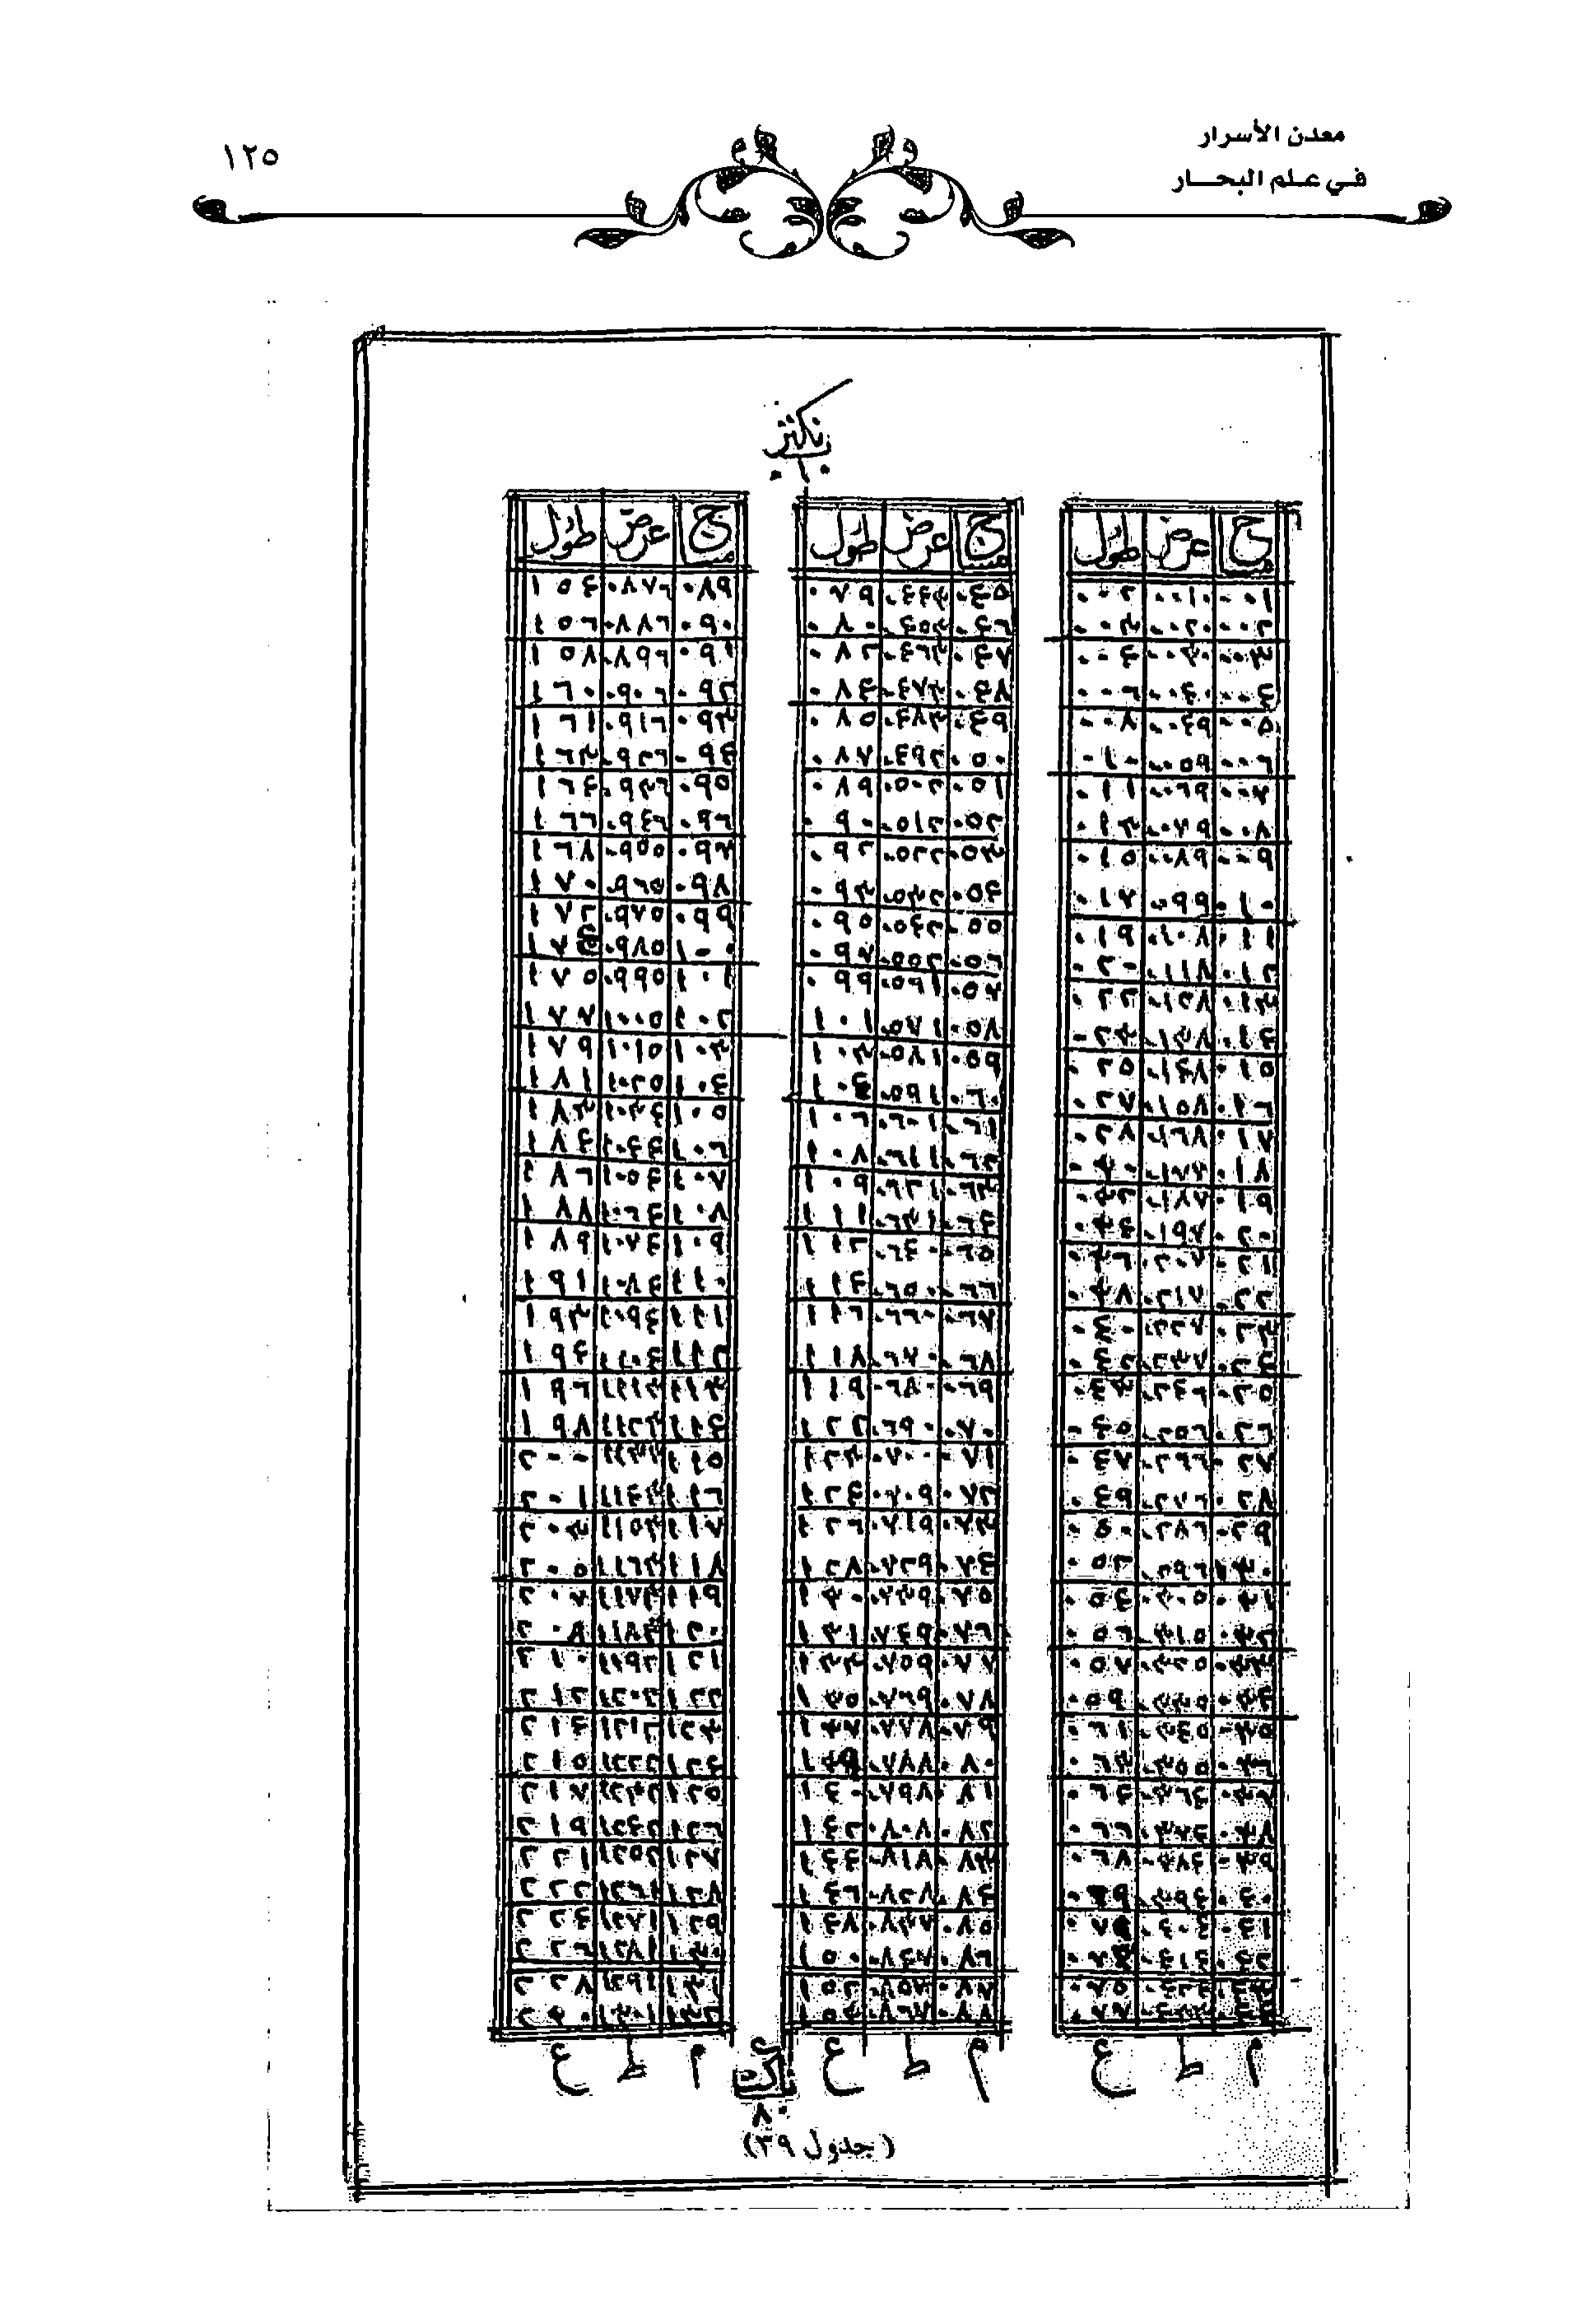 معدن الأسرار
في علم البحار
١٢٥
١٠
ح عرض طول
٠٠١ ٠٠١٠ ٠٠٢
٠٠٢ ٠٠٢٠ ٠٠٣
٠٠٣ ٠٠٣٠ ٠٠٤
٠٠٤ ٠٠٤٠ ٠٠٦
٠٠٥ ٠٠٤٩ ٠٠٨
٠٠٦ ٠٠٥٩ ٠١٠
٠٠٧ ٠٠٦٩ ٠١١
٠٠٨ ٠٠٧٩ ٠١٣
٠٠٩ ٠٠٨٩ ٠١٥
٠١٠ ٠٠٩٩ ٠١٧
٠١١ ٠١٠٨ ٠١٩
٠١٢ ٠١١٨ ٠٢٠
٠١٣ ٠١٢٨ ٠٢٢
٠١٤ ٠١٣٨ ٠٢٣
٠١٥ ٠١٤٨ ٠٢٥
٠١٦ ٠١٥٨ ٠٢٧
٠١٧ ٠١٦٨ ٠٢٨
٠١٨ ٠١٧٧ ٠٣٠
٠١٩ ٠١٨٧ ٠٣٢
٠٢٠ ٠١٩٧ ٠٣٤
٠٢١ ٠٢٠٧ ٠٣٦
٠٢٢ ٠٢١٧ ٠٣٨
٠٢٣ ٠٢٢٧ ٠٤٠
٠٢٤ ٠٢٣٧ ٠٤٢
٠٢٥ ٠٢٤٦ ٠٤٣
٠٢٦ ٠٢٥٦ ٠٤٥
٠٢٧ ٠٢٦٦ ٠٤٧
٠٢٨ ٠٢٧٦ ٠٤٩
٠٢٩ ٠٢٨٦ ٠٥٠
٠٣٠ ٠٢٩٦ ٠٥٢
٠٣١ ٠٣٠٥ ٠٥٤
٠٣٢ ٠٣١٥ ٠٥٦
٠٣٣ ٠٣٢٥ ٠٥٧
٠٣٤ ٠٣٣٥ ٠٥٩
٠٣٥ ٠٣٤٥ ٠٦١
٠٣٦ ٠٣٥٥ ٠٦٣
٠٣٧ ٠٣٦٤ ٠٦٤
٠٣٨ ٠٣٧٤ ٠٦٦
٠٣٩ ٠٣٨٤ ٠٦٨
٠٤٠ ٠٣٩٤ ٠٦٩
٠٤١ ٠٤٠٤
٠٤٢ ٠٤١٤
٠٤٣ ٠٤٢٤ ٠٧٥
٠٤٤ ٠٤٣٣ ٠٧٧
م ط ع
ح عرض طول
٠٤٥ ٠٤٤٣ ٠٧٩
٠٤٦ ٠٤٥٣ ٠٨٠
٠٤٧ ٠٤٦٣ ٠٨٢
٠٤٨ ٠٤٧٣ ٠٨٤
٠٤٩ ٠٤٨٣ ٠٨٥
٠٥٠ ٠٤٩٢ ٠٨٧
٠٥١ ٠٥٠٢ ٠٨٩
٠٥٢ ٠٥١٢ ٠٩٠
٠٥٣ ٠٥٢٢ ٠٩٢
٠٥٤ ٠٥٣٢ ٠٩٣
٠٥٥ ٠٥٤٢ ٠٩٥
٠٥٦ ٠٥٥٢ ٠٩٧
٠٥٧ ٠٥٦١ ٠٩٩
٠٥٨ ٠٥٧١ ١٠١
٠٥٩ ٠٥٨١ ١٠٣
٠٦٠ ٠٥٩١ ١٠٤
٠٦١ ٠٦٠١ ١٠٦
٠٦٢ ٠٦١١ ١٠٨
٠٦٣ ٠٦٢١ ١٠٩
٠٦٤ ٠٦٣١ ١١١
٠٦٥ ٠٦٤٠ ١١٢
٠٦٦ ٠٦٥٠ ١١٤
٠٦٧ ٠٦٦٠ ١١٦
٠٦٨ ٠٦٧٠ ١١٨
٠٦٩ ٠٦٨٠ ١١٩
٠٧٠ ٠٦٩٠ ١٢٢
٠٧١ ٠٧٠٠ ١٢٣
٠٧٢ ٠٧٠٩ ١٢٤
٠٧٣ ٠٧١٩ ١٢٦
٠٧٤ ٠٧٢٩ ١٢٨
٠٧٥ ٠٧٣٩ ١٣٠
٠٧٦ ٠٧٤٩ ١٣١
٠٧٧ ٠٧٥٩ ١٣٣
٠٧٨ ٠٧٦٩ ١٣٥
٠٧٩ ٠٧٧٨ ١٣٧
٠٨٠ ٠٧٨٨ ١٣٩
٠٨١ ٠٧٩٨ ١٤٠
٠٨٢ ٠٨٠٨ ١٤٢
٠٨٣ ٠٨١٨ ١٤٤
٠٨٤ ٠٨٢٨ ١٤٦
٠٨٥ ٠٨٣٧ ١٤٨
٠٨٦ ٠٨٤٧ ١٥٠
٠٨٧ ٠٨٥٧ ١٥٢
٠٨٨ ٠٨٦٧ ١٥٣
م ط ع
ح عرض طول
٠٨٩ ٠٨٧٦ ١٥٤
٠٩٠ ٠٨٨٦ ١٥٦
٠٩١ ٠٨٩٦ ١٥٨
٠٩٢ ٠٩٠٦ ١٦٠
٠٩٣ ٠٩١٦ ١٦١
٠٩٤ ٠٩٢٦ ١٦٣
٠٩٥ ٠٩٣٦ ١٦٤
٠٩٦ ٠٩٤٦ ١٦٦
٠٩٧ ٠٩٥٥ ١٦٨
٠٩٨ ٠٩٦٥ ١٧٠
٠٩٩ ٠٩٧٥ ١٧٢
١٠٠ ٠٩٨٥ ١٧٤
١٠١ ٠٩٩٥ ١٧٥
١٠٢ ١٠٠٥ ١٧٧
١٠٣ ١٠١٥ ١٧٩
١٠٤ ١٠٢٥ ١٨١
١٠٥ ١٠٣٤ ١٨٣
١٠٦ ١٠٤٤ ١٨٤
١٠٧ ١٠٥٤ ١٨٦
١٠٨ ١٠٦٤ ١٨٨
١٠٩ ١٠٧٤ ١٨٩
١١٠ ١٠٨٤ ١٩١
١١١ ١٠٩٤ ١٩٣
١١٢ ١١٠٤ ١٩٤
١١٣ ١١١٣ ١٩٦
١١٤ ١١٢٣ ١٩٨
١١٥ ١١٣٣ ٢٠٠
١١٦ ١١٤٣ ٢٠١
١١٧ ١١٥٣ ٢٠٣
١١٨ ١١٦٣ ٢٠٥
١١٩ ١١٧٣ ٢٠٧
١٢٠ ١١٨٣ ٢٠٨
١٢١ ١١٩٢ ٢١٠
١٢٢ ١٢٠٢ ٢١٢
١٢٣ ١٢١٢ ٢١٤
١٢٤ ١٢٢٢ ٢١٥
١٢٥ ١٢٣٢ ٢١٧
١٢٦ ١٢٤٢ ٢١٩
١٢٧ ١٢٥٢ ٢٢١
١٢٨ ١٢٦١ ٢٢٢
١٢٩ ١٢٧١ ٢٢٤
١٣٠ ١٢٨١ ٢٢٦
١٣١ ١٢٩١ ٢٢٨
١٣٢ ١٣٠١ ٢٣٠
م ط ع
٨٠
(جدول ٣٩)